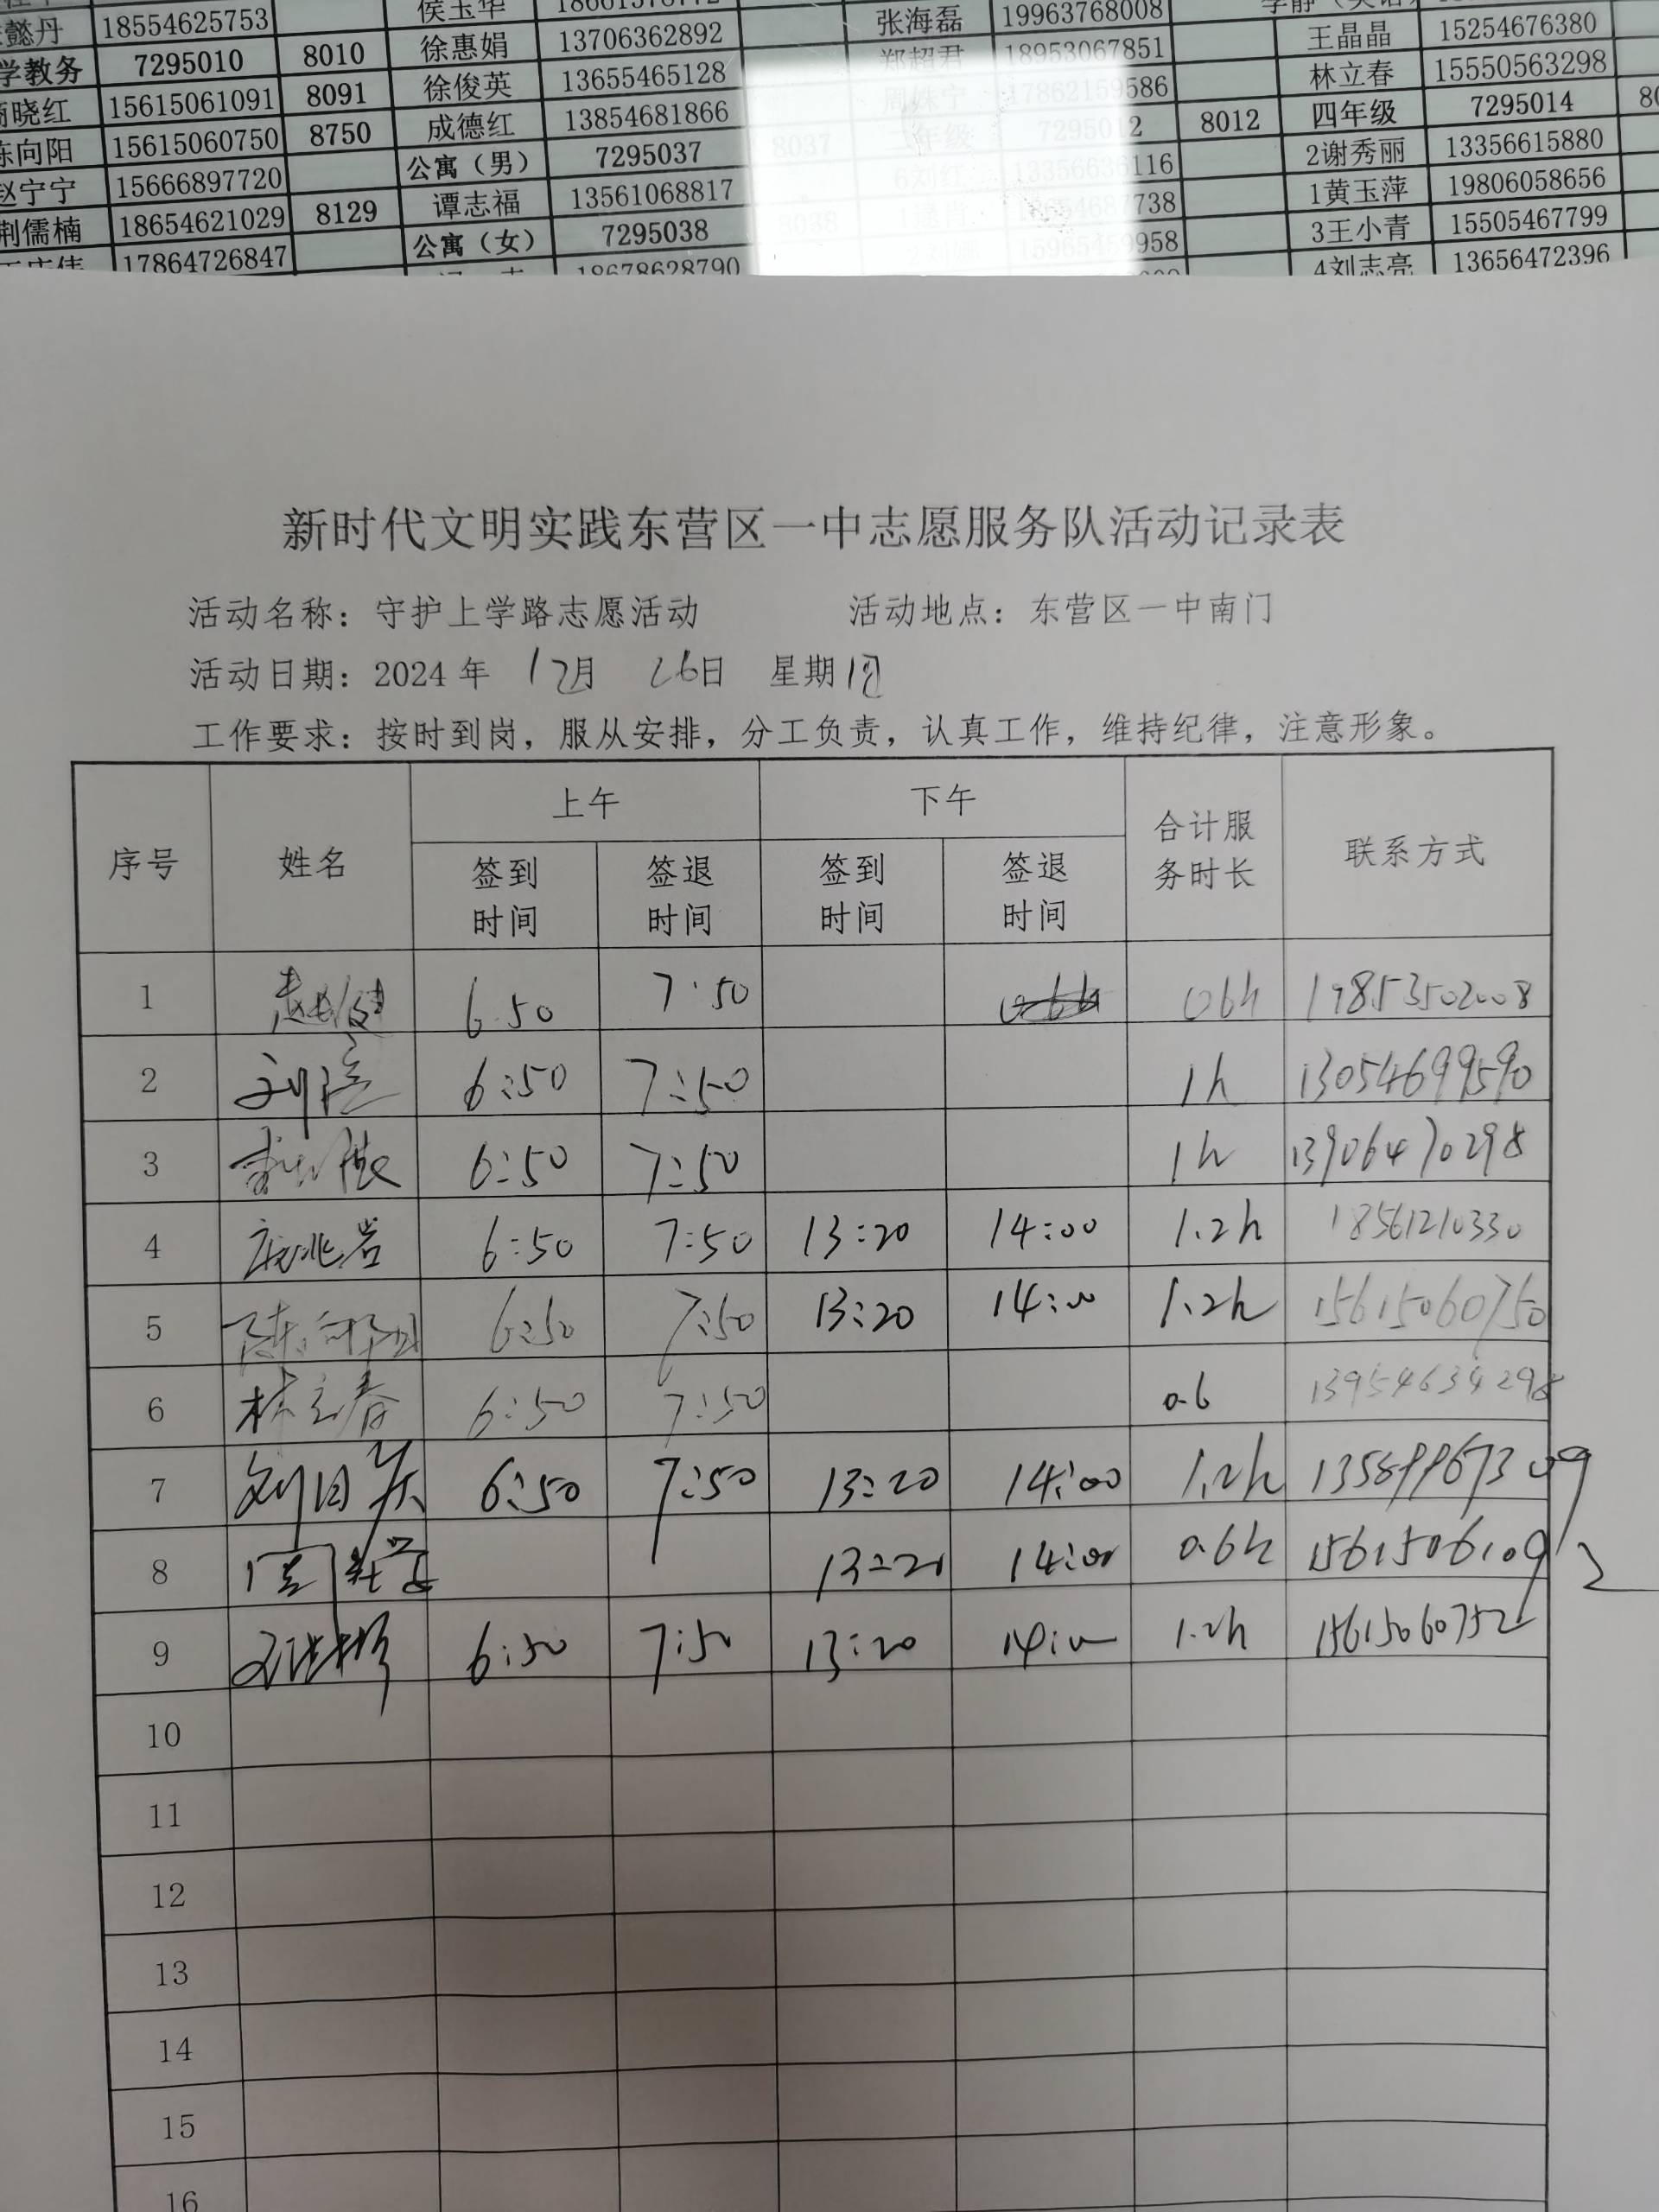 懿丹 18554625753 侯玉华 张海磊 19963768008
学教务 7295010 8010 徐惠娟 13706362892 郑超君 18953067851 王晶晶 15254676380
晓红 15615061091 8091 徐俊英 13655465128 周姝宁 17862159586 林立春 15550563298
陈向阳 15615060750 8750 成德红 13854681866 年级 7295012 8012 四年级 7295014
赵宁宁 15666897720 公寓（男） 7295037 8037 2谢秀丽 13356615880
荆儒楠 18654621029 8129 谭志福 13561068817 1黄玉萍 19806058656
17864726847 公寓（女） 7295038 3王小青 15505467799
18678628790 4刘志亮 13656472396
新时代文明实践东营区一中志愿服务队活动记录表
活动名称：守护上学路志愿活动 活动地点：东营区一中南门
活动日期：2024年 12月 26日 星期四
工作要求：按时到岗，服从安排，分工负责，认真工作，维持纪律，注意形象。
序号 姓名 上午 下午 合计服务时长 联系方式
签到时间 签退时间 签到时间 签退时间
1 6:50 7:50 0.6h 19853502008
2 6:50 7:50 1h 13054699590
3 6:50 7:50 1h 13906470298
4 6:50 7:50 13:20 14:00 1.2h 18561210330
5 陈向阳 6:50 7:50 13:20 14:00 1.2h 15615060750
6 林立春 6:50 7:50 0.6 13954634298
7 6:50 7:50 13:20 14:00 1.2h
8 13:20 14:00 0.6h 15615061092
9 6:50 7:50 13:20 14:00 1.2h 15615060752
10
11
12
13
14
15
16